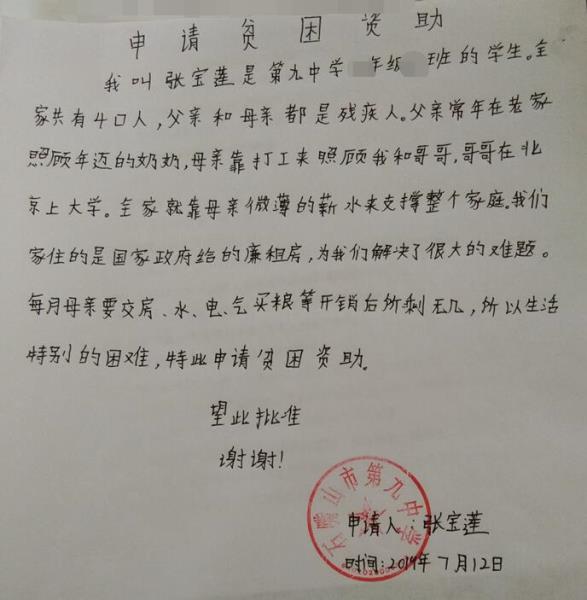 申请贫困资助
我叫张宝莲是第九中学 年级 班的学生。全
家共有4口人，父亲和母亲都是残疾人。父亲常年在老家
照顾年迈的奶奶，母亲靠打工来照顾我和哥哥，哥哥在北
京上大学。全家就靠母亲微薄的薪水来支撑整个家庭。我们
家住的是国家政府给的廉租房，为我们解决了很大的难题。
每月母亲要交房、水、电、气买粮等开销后所剩无几，所以生活
特别的困难，特此申请贫困资助。
望此批准
谢谢！
石嘴山市第九中学
申请人：张宝莲
时间：2014年7月12日